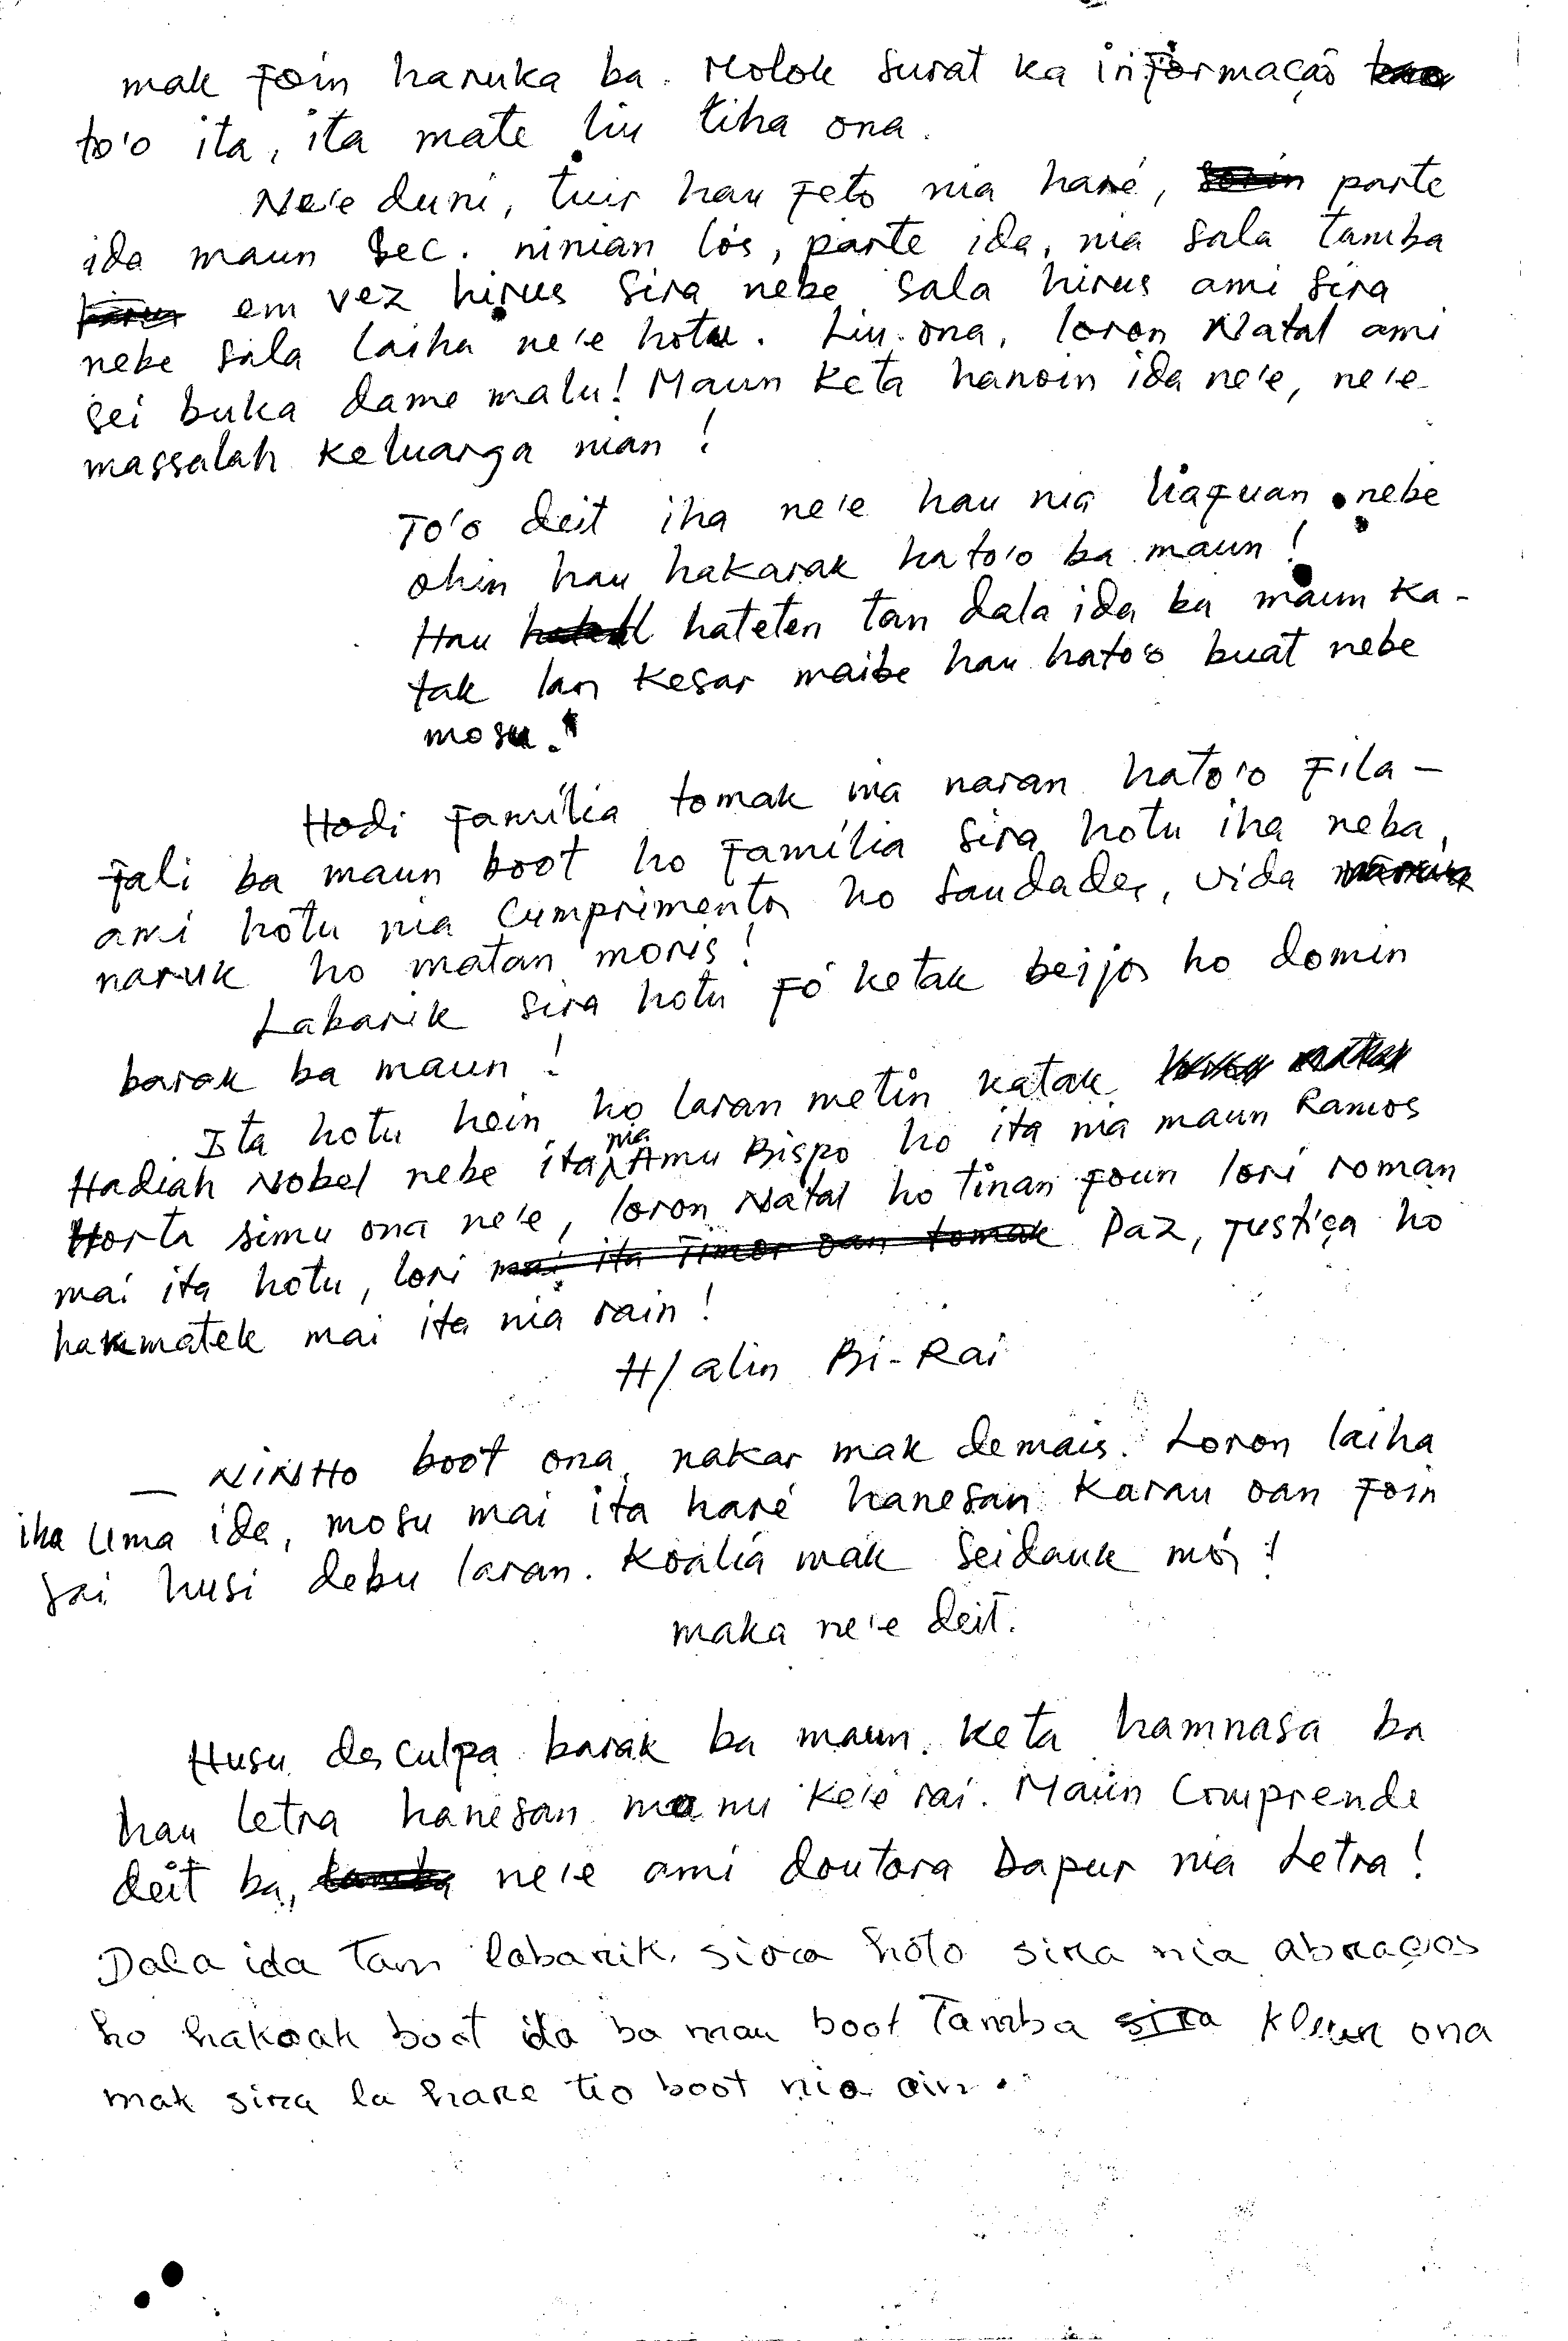 mak foin haruka ba. Molok surat ka informação
to'o ita, ita mate liu tiha ona.
Ne'e duni, tuir hau feto nia haré, parte
ida maun Sec. ninian lós, parte ida, nia sala tamba
em vez hirus sira nebe sala hirus ami sira
nebe sala laiha ne'e hotu. Liu ona, loron Natal ami
sei buka dame malu! Maun keta hanoin ida ne'e, ne'e
massalah keluarga nian!
To'o deit iha ne'e hau nia liafuan nebe
ohin hau hakarak hato'o ba maun!
Hau hateten tan dala ida ba maun ka-
tak lan kesar maibe hau hato'o buat nebe
mosu.
Hodi família tomak nia naran hato'o fila-
fali ba maun boot ho família sira hotu iha neba,
ami hotu nia cumprimentos ho saudades, vida
naruk ho matan moris!
Labarik sira hotu fó ketak beijos ho domin
barak ba maun!
Ita hotu hein ho laran metin katak
Hadiah Nobel nebe ita nia Amu Bispo ho ita nia maun Ramos
Horta simu ona ne'e, loron Natal ho tinan foun lori roman
mai ita hotu, lori mai ita Timor oan tomak Paz, justiça ho
hakmatek mai ita nia rain!
H/alin Bi-Rai
— NINHO boot ona, nakar mak demais. Loron laiha
iha uma ida, mosu mai ita haré hanesan karau oan foin
sai husi debu laran. Koalia mak seidauk mós!
maka ne'e deit.
Husu desculpa barak ba maun. Keta hamnasa ba
hau letra hanesan manu ke'e rai. Maun comprende
deit ba, ne'e ami doutora Dapur nia letra!
Dala ida tam labarik sira hoto sira nia abraços
ho hakoak boot ida ba mau boot Tamba sira kleur ona
mak sira la hare tio boot nia oin.